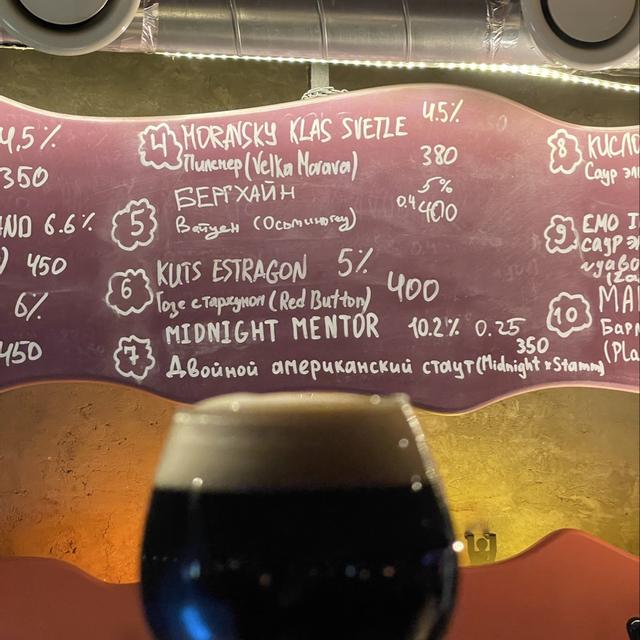 4,5%
350
6.6%
450
6%
450
4 MORAVSKY KLAS SVETLE 4.5%
Пилснер (Velka Morava) 380
5 БЕРГХАЙН 5%
Вайцен (Осьминогеу) 0.4 400
6 KUTS ESTRAGON 5%
Гозе с тархуном (Red Button) 400
7 MIDNIGHT MENTOR 10.2% 0.25
350
Двойной американский стаут (Midnight x Stamm)
8 КИСЛО
Саур
9 EMO
саур
10
(Pla